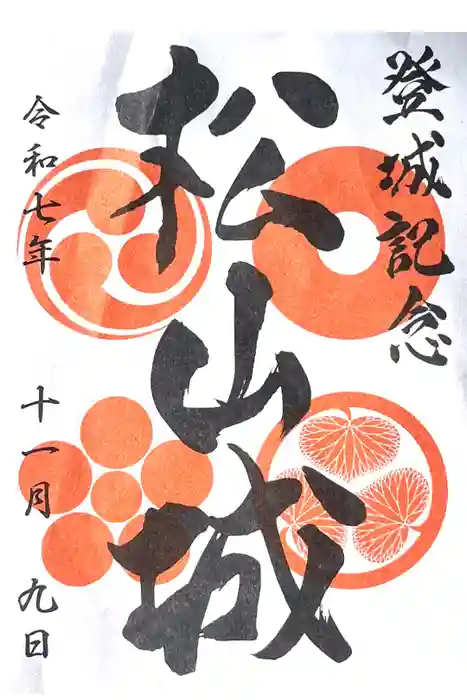 登城記念
松山城
令和七年
十一月
九日